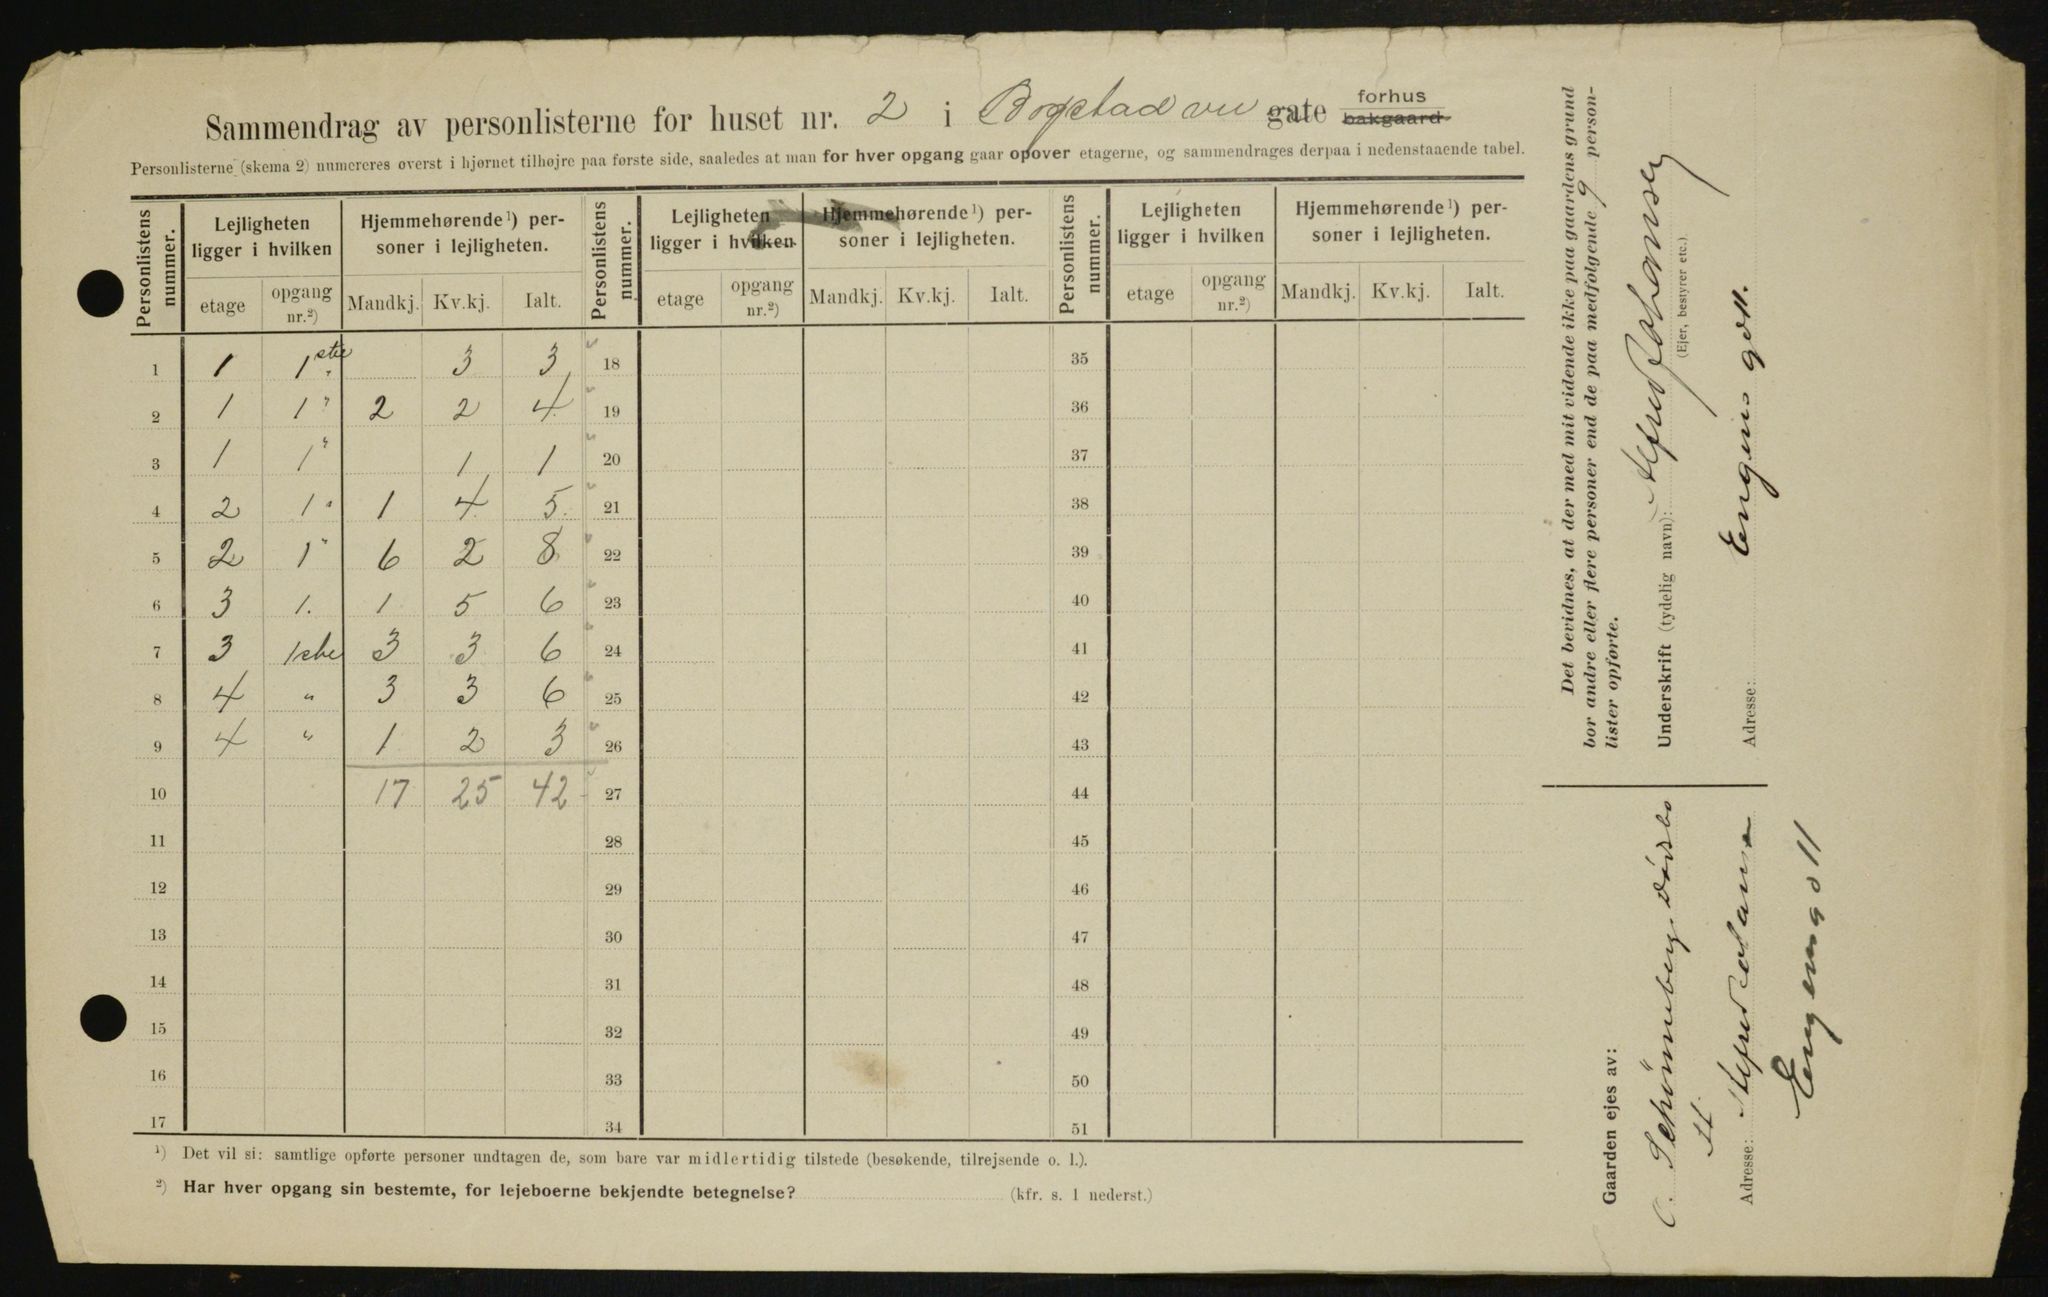 Sammendrag av personlisterne for huset nr. 2 i Bogstad vei gate forhus bakgaard
Personlisterne (skema 2) numereres øverst i hjørnet tilhøjre paa første side, saaledes at man for hver opgang gaar opover etagerne, og sammendrages derpaa i nedenstaaende tabel.
Personlistens nummer. Lejligheten ligger i hvilken Hjemmehørende ¹) personer i lejligheten. Personlistens nummer. Lejligheten ligger i hvilken Hjemmehørende ¹) personer i lejligheten. Personlistens nummer. Lejligheten ligger i hvilken Hjemmehørende ¹) personer i lejligheten.
etage opgang nr.²) Mandkj. Kv.kj. Ialt. etage opgang nr.²) Mandkj. Kv.kj. Ialt. etage opgang nr.²) Mandkj. Kv.kj. Ialt.
1 1 1ste 3 3 18 35
2 1 1 " 2 2 4 19 36
3 1 1 " 1 1 20 37
4 2 1 " 1 4 5 21 38
5 2 1 " 6 2 8 22 39
6 3 1. 1 5 6 23 40
7 3 1ste 3 3 6 24 41
8 4 " 3 3 6 25 42
9 4 " 1 2 3 26 43
10 17 25 42 27 44
11 28 45
12 29 46
13 30 47
14 31 48
15 32 49
16 33 50
17 34 51
¹) Det vil si: samtlige opførte personer undtagen de, som bare var midlertidig tilstede (besøkende, tilrejsende o. l.).
²) Har hver opgang sin bestemte, for lejeboerne bekjendte betegnelse? (kfr. s. 1 nederst.)
Det bevidnes, at der med mit vidende ikke paa gaardens grund
bor andre eller flere personer end de paa medfølgende 9 person-
lister opførte.
Underskrift (tydelig navn): Alfred Johansen
(Ejer, bestyrer etc.)
Adresse: Engens gd 11.
Gaarden ejes av:
C. Schønneberg
Adresse: Alfred Johansen
Engens gd 11